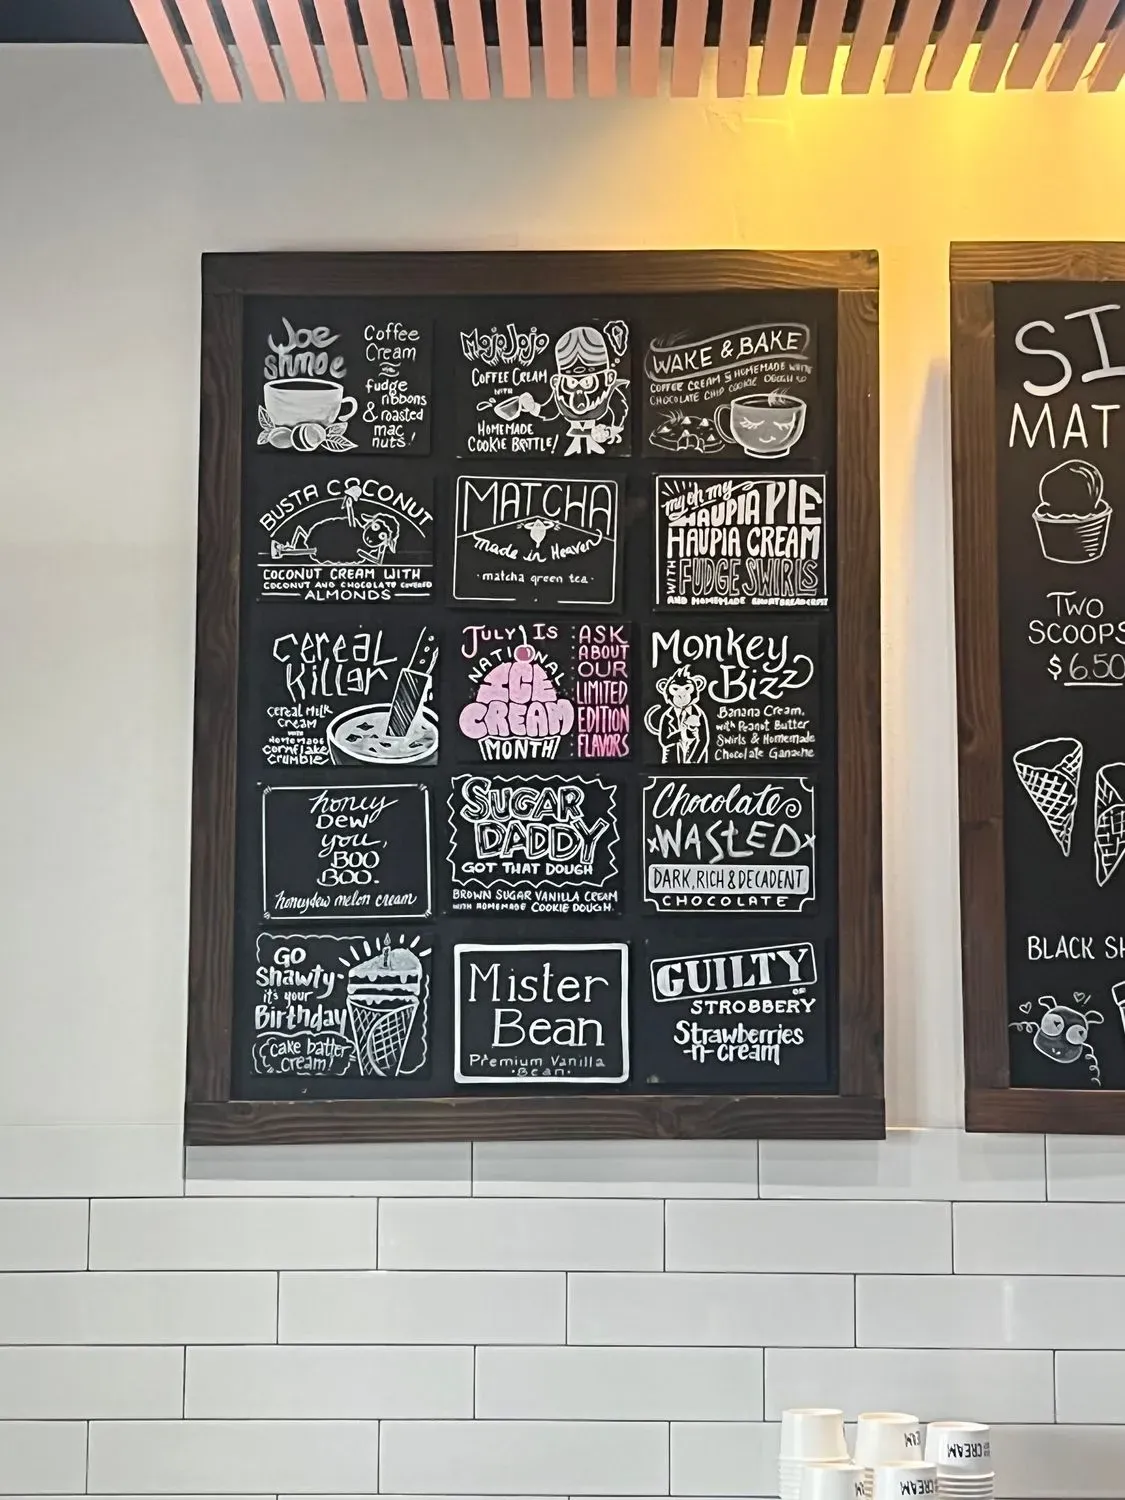 Joe
shmoe
Coffee
Cream
fudge
ribbons
& roasted
mac
nuts!
MojoJojo
COFFEE CREAM
WITH
HOMEMADE
COOKIE BRITTLE!
WAKE & BAKE
COFFEE CREAM & HOMEMADE WITH
CHOCOLATE CHIP COOKIE DOUGH
BUSTA COCONUT
COCONUT CREAM WITH
COCONUT AND CHOCOLATE COVERED
ALMONDS
MATCHA
made in Heaven
matcha green tea
my oh my
HAUPIA PIE
HAUPIA CREAM
WITH FUDGE SWIRLS
AND HOMEMADE SHORTBREAD CRUST
Cereal
Killer
cereal milk
cream
WITH
HOMEMADE
cornflake
crumble
JULY IS
NATIONAL
ICE
CREAM
MONTH
ASK
ABOUT
OUR
LIMITED
EDITION
FLAVORS
Monkey
Bizz
Banana Cream,
with Peanut Butter
Swirls & Homemade
Chocolate Ganache
honey
DEW
you,
BOO
BOO.
honeydew melon cream
SUGAR
DADDY
GOT THAT DOUGH
BROWN SUGAR VANILLA CREAM
WITH HOMEMADE COOKIE DOUGH.
Chocolate
WASTED
DARK, RICH & DECADENT
CHOCOLATE
GO
Shawty-
it's your
Birthday
cake batter
cream!
Mister
Bean
Premium Vanilla
Bean
GUILTY
OF
STROBBERY
Strawberries
-n-cream
SI
MAT
TWO
SCOOPS
$6.50
BLACK SH
CREAM
CREAM